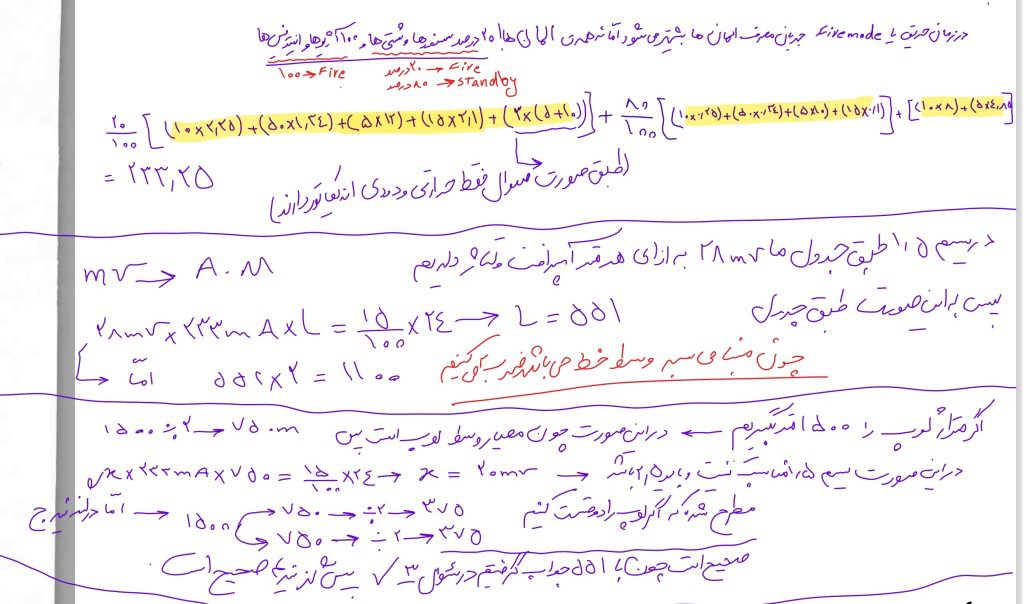 در زمان حریق یا Fire mode جریان مصرف المان ها بیشتر می شود اما نه همه ی المان ها! ۲۰ درصد سنسورها و شستی ها و ۱۰۰٪ آژیرها و
۱۰۰ → Fire
۲۰ درصد → Fire
۸۰ درصد → standby
۲۰/۱۰۰ [(۱۰×۲,۲۵)+(۵۰×۱,۲۴)+(۵×۱۲)+(۱۵×۲,۱)+(۳×(۵+۱۰))] + ۸۰/۱۰۰ [(۱۰×۰,۲۵)+(۵۰×۰,۲۴)+(۵×۱۰)+(۱۵×۰,۱)] + [(۱۰×۸)+(۵×۴,۸۵)]
= ۲۳۳,۲۵
(طبق صورت سوال فقط حرارتی و دودی اندیکاتور دارند)
در سیم ۱,۵ طبق جدول ما ۲۸mv به ازای هر متر آمپر افت ولتاژ داریم
mv → A.M
پس به این صورت طبق جدول
۲۸mv × ۲۳۳mA × L = ۱۵/۱۰۰ × ۲۴ → L = ۵۵۱
چون مبنا می سیم وسط خط می باشد ضرب می کنیم
اما ۵۵۲×۲ = ۱۱۰۰
اگر متراژ لوپ را ۱۵۰۰ متر بگیریم → در این صورت چون معیار وسط لوپ است پس ۱۵۰۰ ÷ ۲ → ۷۵۰m
x × ۲۳۳mA × ۷۵۰ = ۱۵/۱۰۰ × ۲۴ → x = ۲۰mv → در این صورت سیم ۱,۵ مناسب نیست و باید ۲,۵ باشد
مطرح شده که اگر لوپ را دو قسمت کنیم
۱۵۰۰ → ۷۵۰ → ÷۲ → ۳۷۵
→ ۷۵۰ → ÷۲ → ۳۷۵
→ اما در گزینه ج
صحیح است چون با ۵۵۱ جواب گرفتیم در سئوال ۳ ✓ پس گزینه ج صحیح است